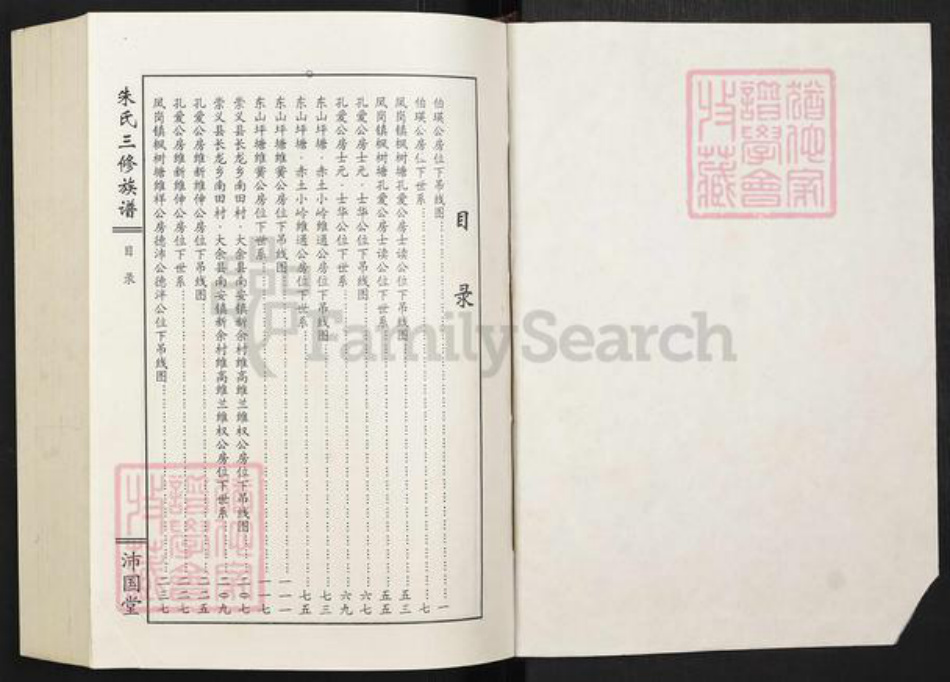 目 录
伯瑛公房位下吊线图……一
伯瑛公房位下世系……七
凤岗镇枫树塘孔爱公房士读公位下吊线图……五三
凤岗镇枫树塘孔爱公房士读公位下世系……五五
孔爱公房士元·士华公位下吊线图……六七
孔爱公房士元·士华公位下世系……六九
东山坪塘·赤土小岭维通公房位下吊线图……七三
东山坪塘·赤土小岭维通公房位下世系……七五
东山坪塘维黉公房位下吊线图……一一一
东山坪塘维黉公房位下世系……一一七
崇义县长龙乡南田村·大余县南安镇新余村维高维兰维权公房位下吊线图……二〇七
崇义县长龙乡南田村·大余县南安镇新余村维高维兰维权公房位下世系……二〇九
孔爱公房维新维伸公房位下吊线图……二二五
孔爱公房维新维伸公房位下世系……二二七
凤岗镇枫树塘维样公房德沛公德泮公位下吊线图……二三七
朱氏三修族谱
目 录
沛国堂
FamilySearch
谱学会
收藏